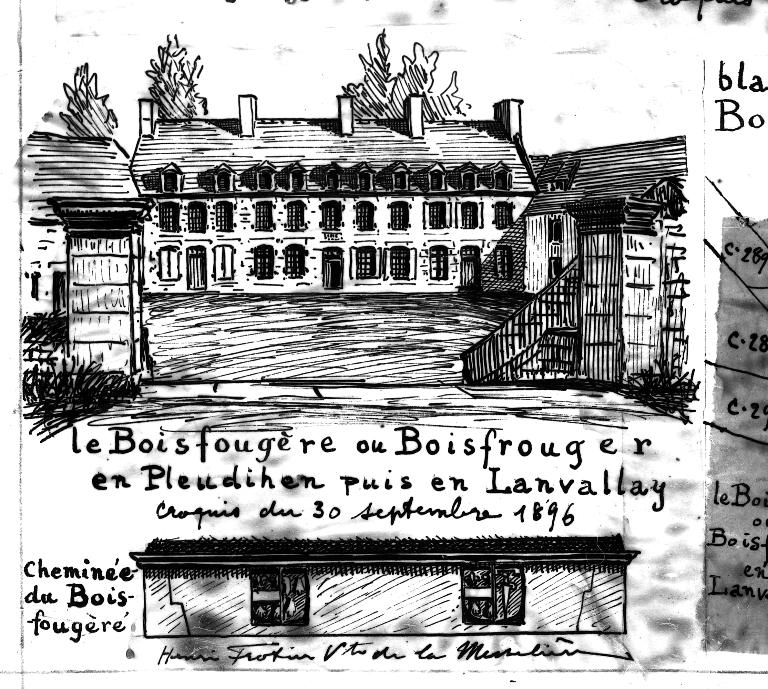 le Boisfougère ou Boisfrouger
en Pleudihen puis en Lanvallay
croquis du 30 septembre 1896
Cheminée
du Bois-
fougère
Henri Frotier Vte de la Messelière
bla
Bo
C.289
C.28
C.29
le Boi
o
Boisf
en
Lanva